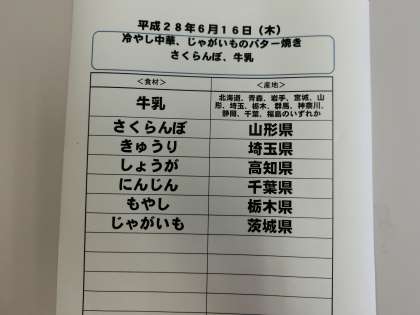 平成28年6月16日（木）
冷やし中華、じゃがいものバター焼き
さくらんぼ、牛乳
＜食材＞ ＜産地＞
牛乳 北海道、青森、岩手、宮城、山
形、埼玉、栃木、群馬、神奈川、
静岡、千葉、福島のいずれか
さくらんぼ 山形県
きゅうり 埼玉県
しょうが 高知県
にんじん 千葉県
もやし 栃木県
じゃがいも 茨城県